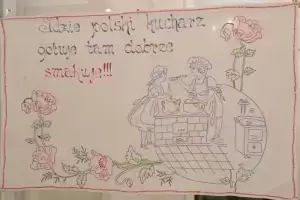 Gdzie polski kucharz
gotuje tam dobrze
smakuje!!!